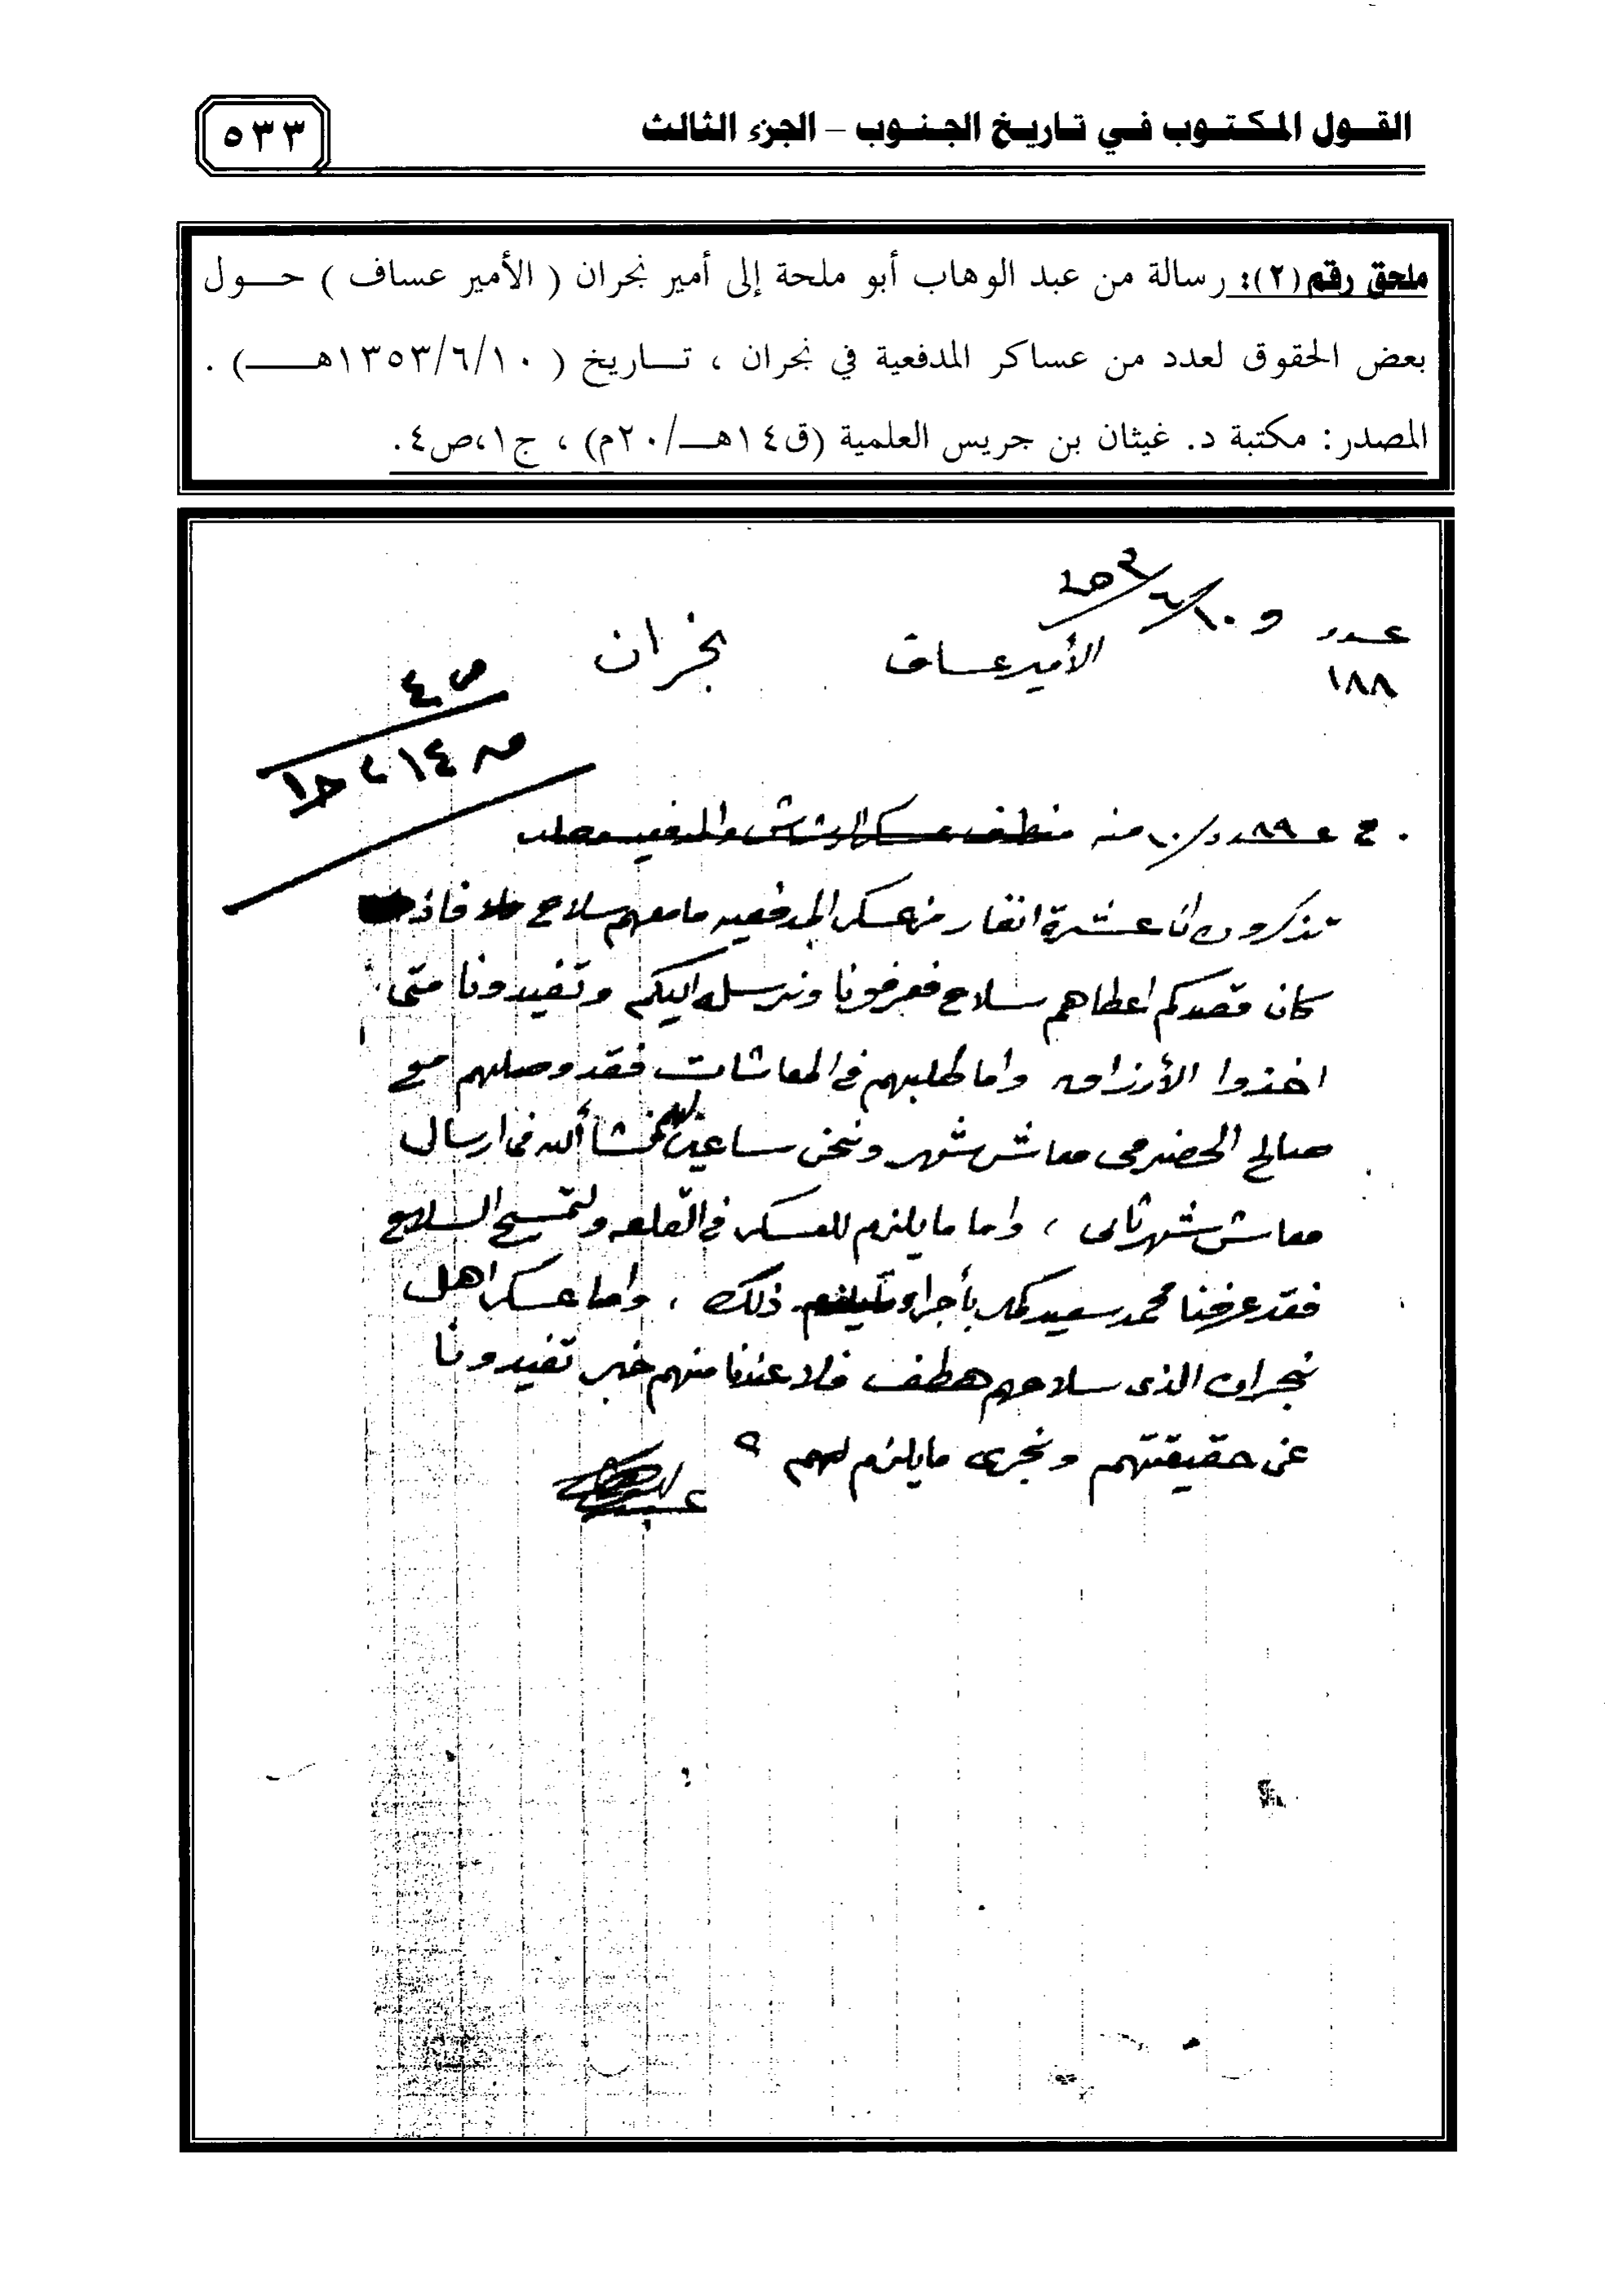 القول المكتوب في تاريخ الجنوب – الجزء الثالث
٥٣٣
ملحق رقم (٢): رسالة من عبد الوهاب أبو ملحة إلى أمير نجران ( الأمير عساف ) حول
بعض الحقوق لعدد من عساكر المدفعية في نجران ، تاريخ ( ١٣٥٣/٦/١٠هـ) .
المصدر: مكتبة د. غيثان بن جريس العلمية (ق١٤هـ/٢٠م) ، ج١،ص٤.
عدد و ١٠/٦/٥٣
١٨٨
الأمير عساف نجران
ص ٤
ق ١٤ ج١
ج ع ٨٩ و ١٠ منه
تذكرون ان عشرة انفار من عسكر المدفعيه ما معهم سلاح فاذ
كان قصدكم اعطاهم سلاح فعرفونا ونرسله اليكم وتفيدونا متى
اخذوا الأرزاق واما طلبهم في المعاشات فقد وصلهم مع
صالح الحضرمي معاش شهر ونحن ساعين انشأ الله في ارسال
معاش شهر ثاني ، واما ما يلزم للعسكر في القلعه ولتمسيح السلاح
فقد عرفنا محمد سعيد كمال بأجراء ذلك ، واما عسكر اهل
نجران الذى سلاحهم هطف فلا عندنا منهم خبر تفيدونا
عن حقيقتهم ونجرى ما يلزم لهم